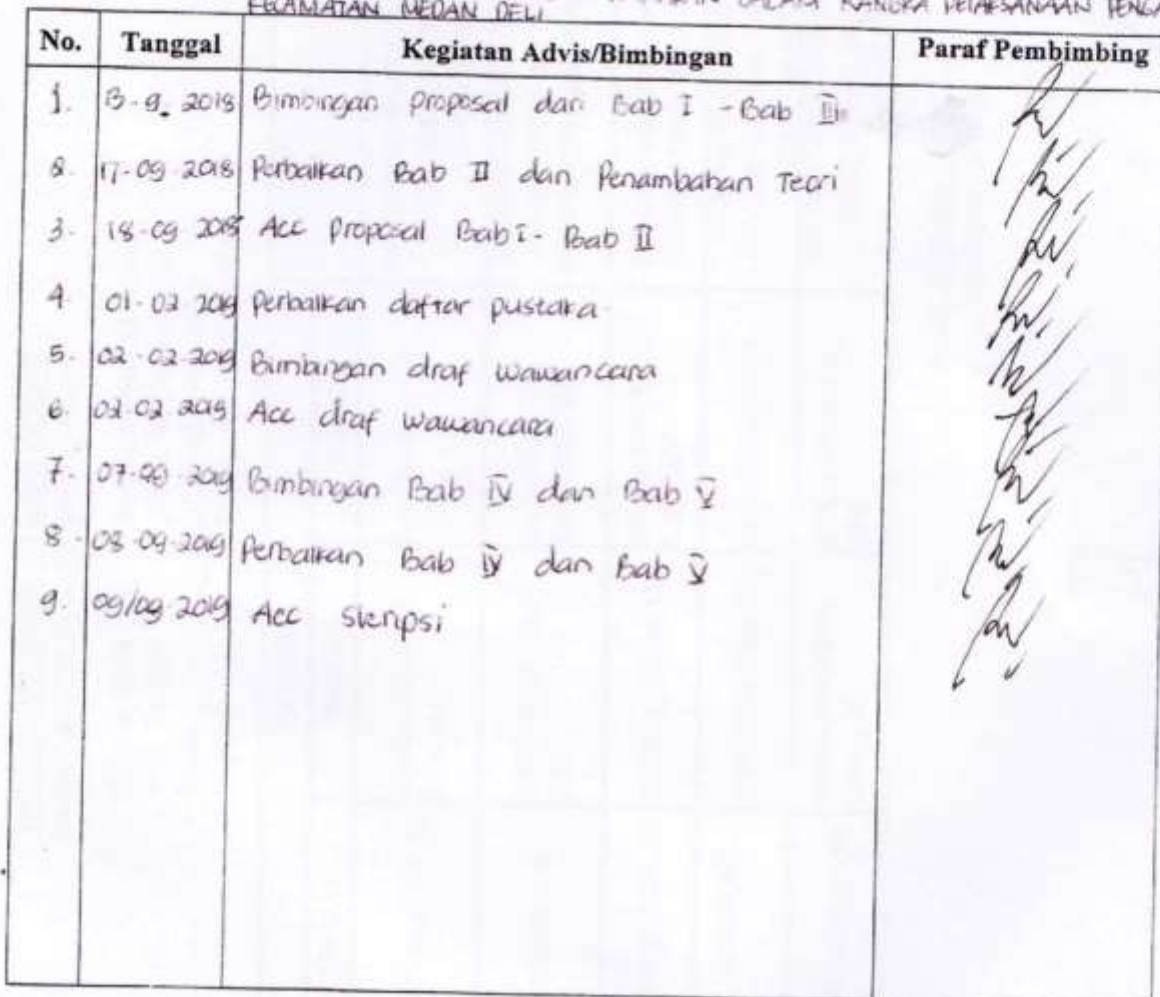 DALAM RANGKA PELAKSANAAN
KECAMATAN MEDAN DELI
No. Tanggal Kegiatan Advis/Bimbingan Paraf Pembimbing
1. 13-9-2018 Bimbingan proposal dari Bab I - Bab III
2. 17-09-2018 Perbaikan Bab II dan Penambahan Teori
3. 18-09-2018 Acc Proposal Bab I - Bab II
4. 01-02-2019 perbaikan daftar pustaka
5. 02-02-2019 Bimbingan draf wawancara
6. 02-02-2019 Acc draf wawancara
7. 07-09-2019 Bimbingan Bab IV dan Bab V
8. 08-09-2019 Perbaikan Bab IV dan Bab V
9. 09/09-2019 Acc skripsi